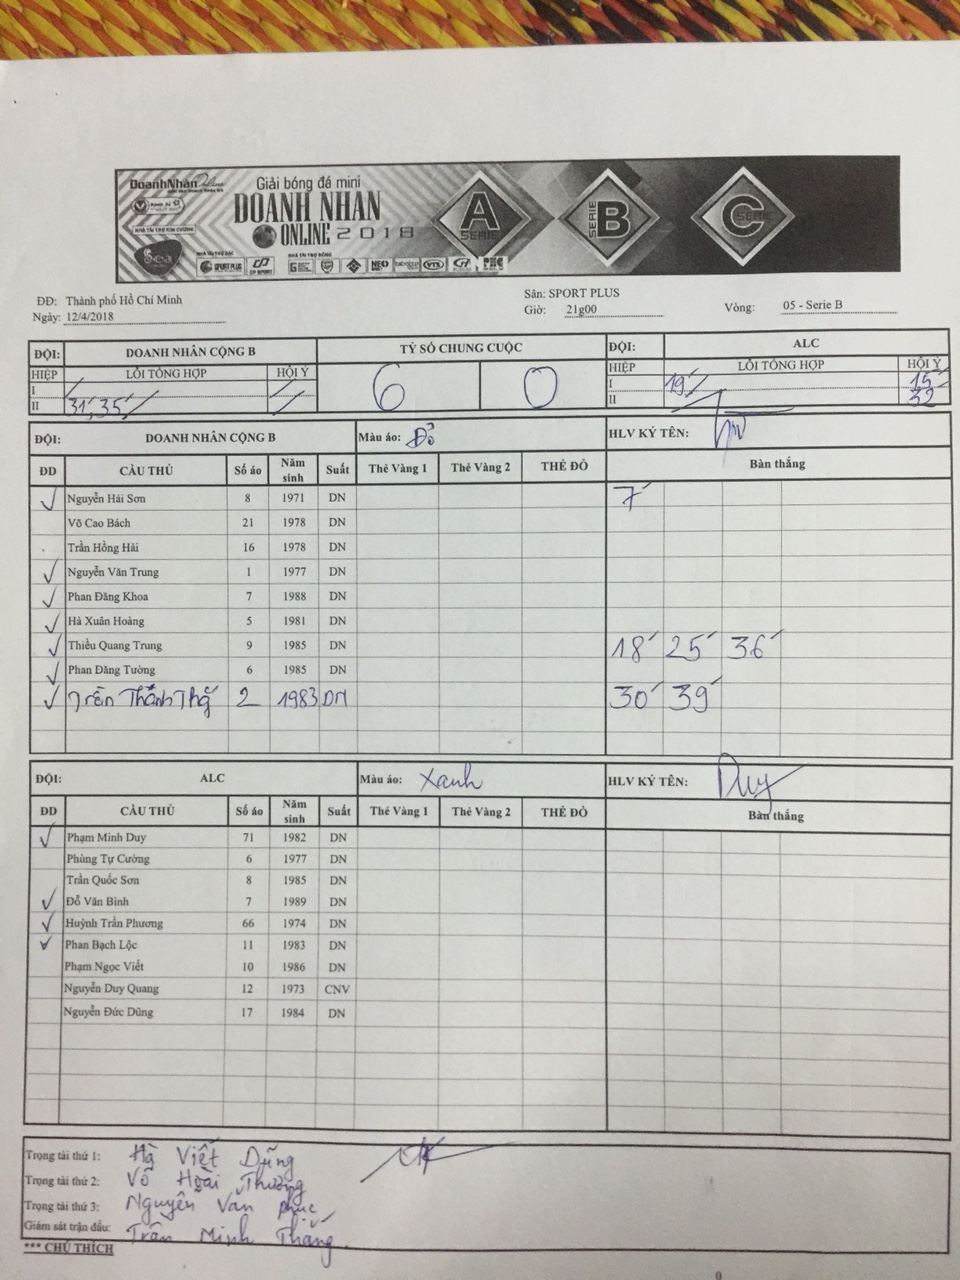 DoanhNhanOnline
Giải bóng đá mini
DOANH NHAN
ONLINE 2018
A
SERIE
B
SERIE
C
SERIE
NHÀ TÀI TRỢ KIM CƯƠNG
Sea
NHÀ TÀI TRỢ BẠC
NHÀ TÀI TRỢ ĐỒNG
SPORT PLUS
NEO
ĐĐ: Thành phố Hồ Chí Minh Sân: SPORT PLUS
Ngày: 12/4/2018 Giờ: 21g00 Vòng: 05 - Serie B
ĐỘI: DOANH NHÂN CỘNG B TỶ SỐ CHUNG CUỘC ĐỘI: ALC
HIỆP LỖI TỔNG HỢP HỘI Ý 6 0 HIỆP LỖI TỔNG HỢP HỘI Ý
I I 19' 15'
II 31', 35' II 32
ĐỘI: DOANH NHÂN CỘNG B Màu áo: Đỏ HLV KÝ TÊN:
ĐD CẦU THỦ Số áo Năm sinh Suất Thẻ Vàng 1 Thẻ Vàng 2 THẺ ĐỎ Bàn thắng
✓ Nguyễn Hải Sơn 8 1971 DN 7'
Võ Cao Bách 21 1978 DN
Trần Hồng Hải 16 1978 DN
✓ Nguyễn Văn Trung 1 1977 DN
✓ Phan Đăng Khoa 7 1988 DN
✓ Hà Xuân Hoàng 5 1981 DN
✓ Thiều Quang Trung 9 1985 DN 18' 25' 36'
✓ Phan Đăng Tường 6 1985 DN
✓ 2 1983 DN 30' 39'
ĐỘI: ALC Màu áo: Xanh HLV KÝ TÊN: Duy
ĐD CẦU THỦ Số áo Năm sinh Suất Thẻ Vàng 1 Thẻ Vàng 2 THẺ ĐỎ Bàn thắng
✓ Phạm Minh Duy 71 1982 DN
Phùng Tự Cường 6 1977 DN
Trần Quốc Sơn 8 1985 DN
✓ Đỗ Văn Bình 7 1989 DN
✓ Huỳnh Trần Phương 66 1974 DN
✓ Phan Bạch Lộc 11 1983 DN
Phạm Ngọc Viết 10 1986 DN
Nguyễn Duy Quang 12 1973 CNV
Nguyễn Đức Dũng 17 1984 DN
Trọng tài thứ 1: Hà Viết Dũng
Trọng tài thứ 2: Võ Hoài Thương
Trọng tài thứ 3: Nguyễn Văn Phúc
Giám sát trận đấu: Trần Minh Thắng
*** CHÚ THÍCH